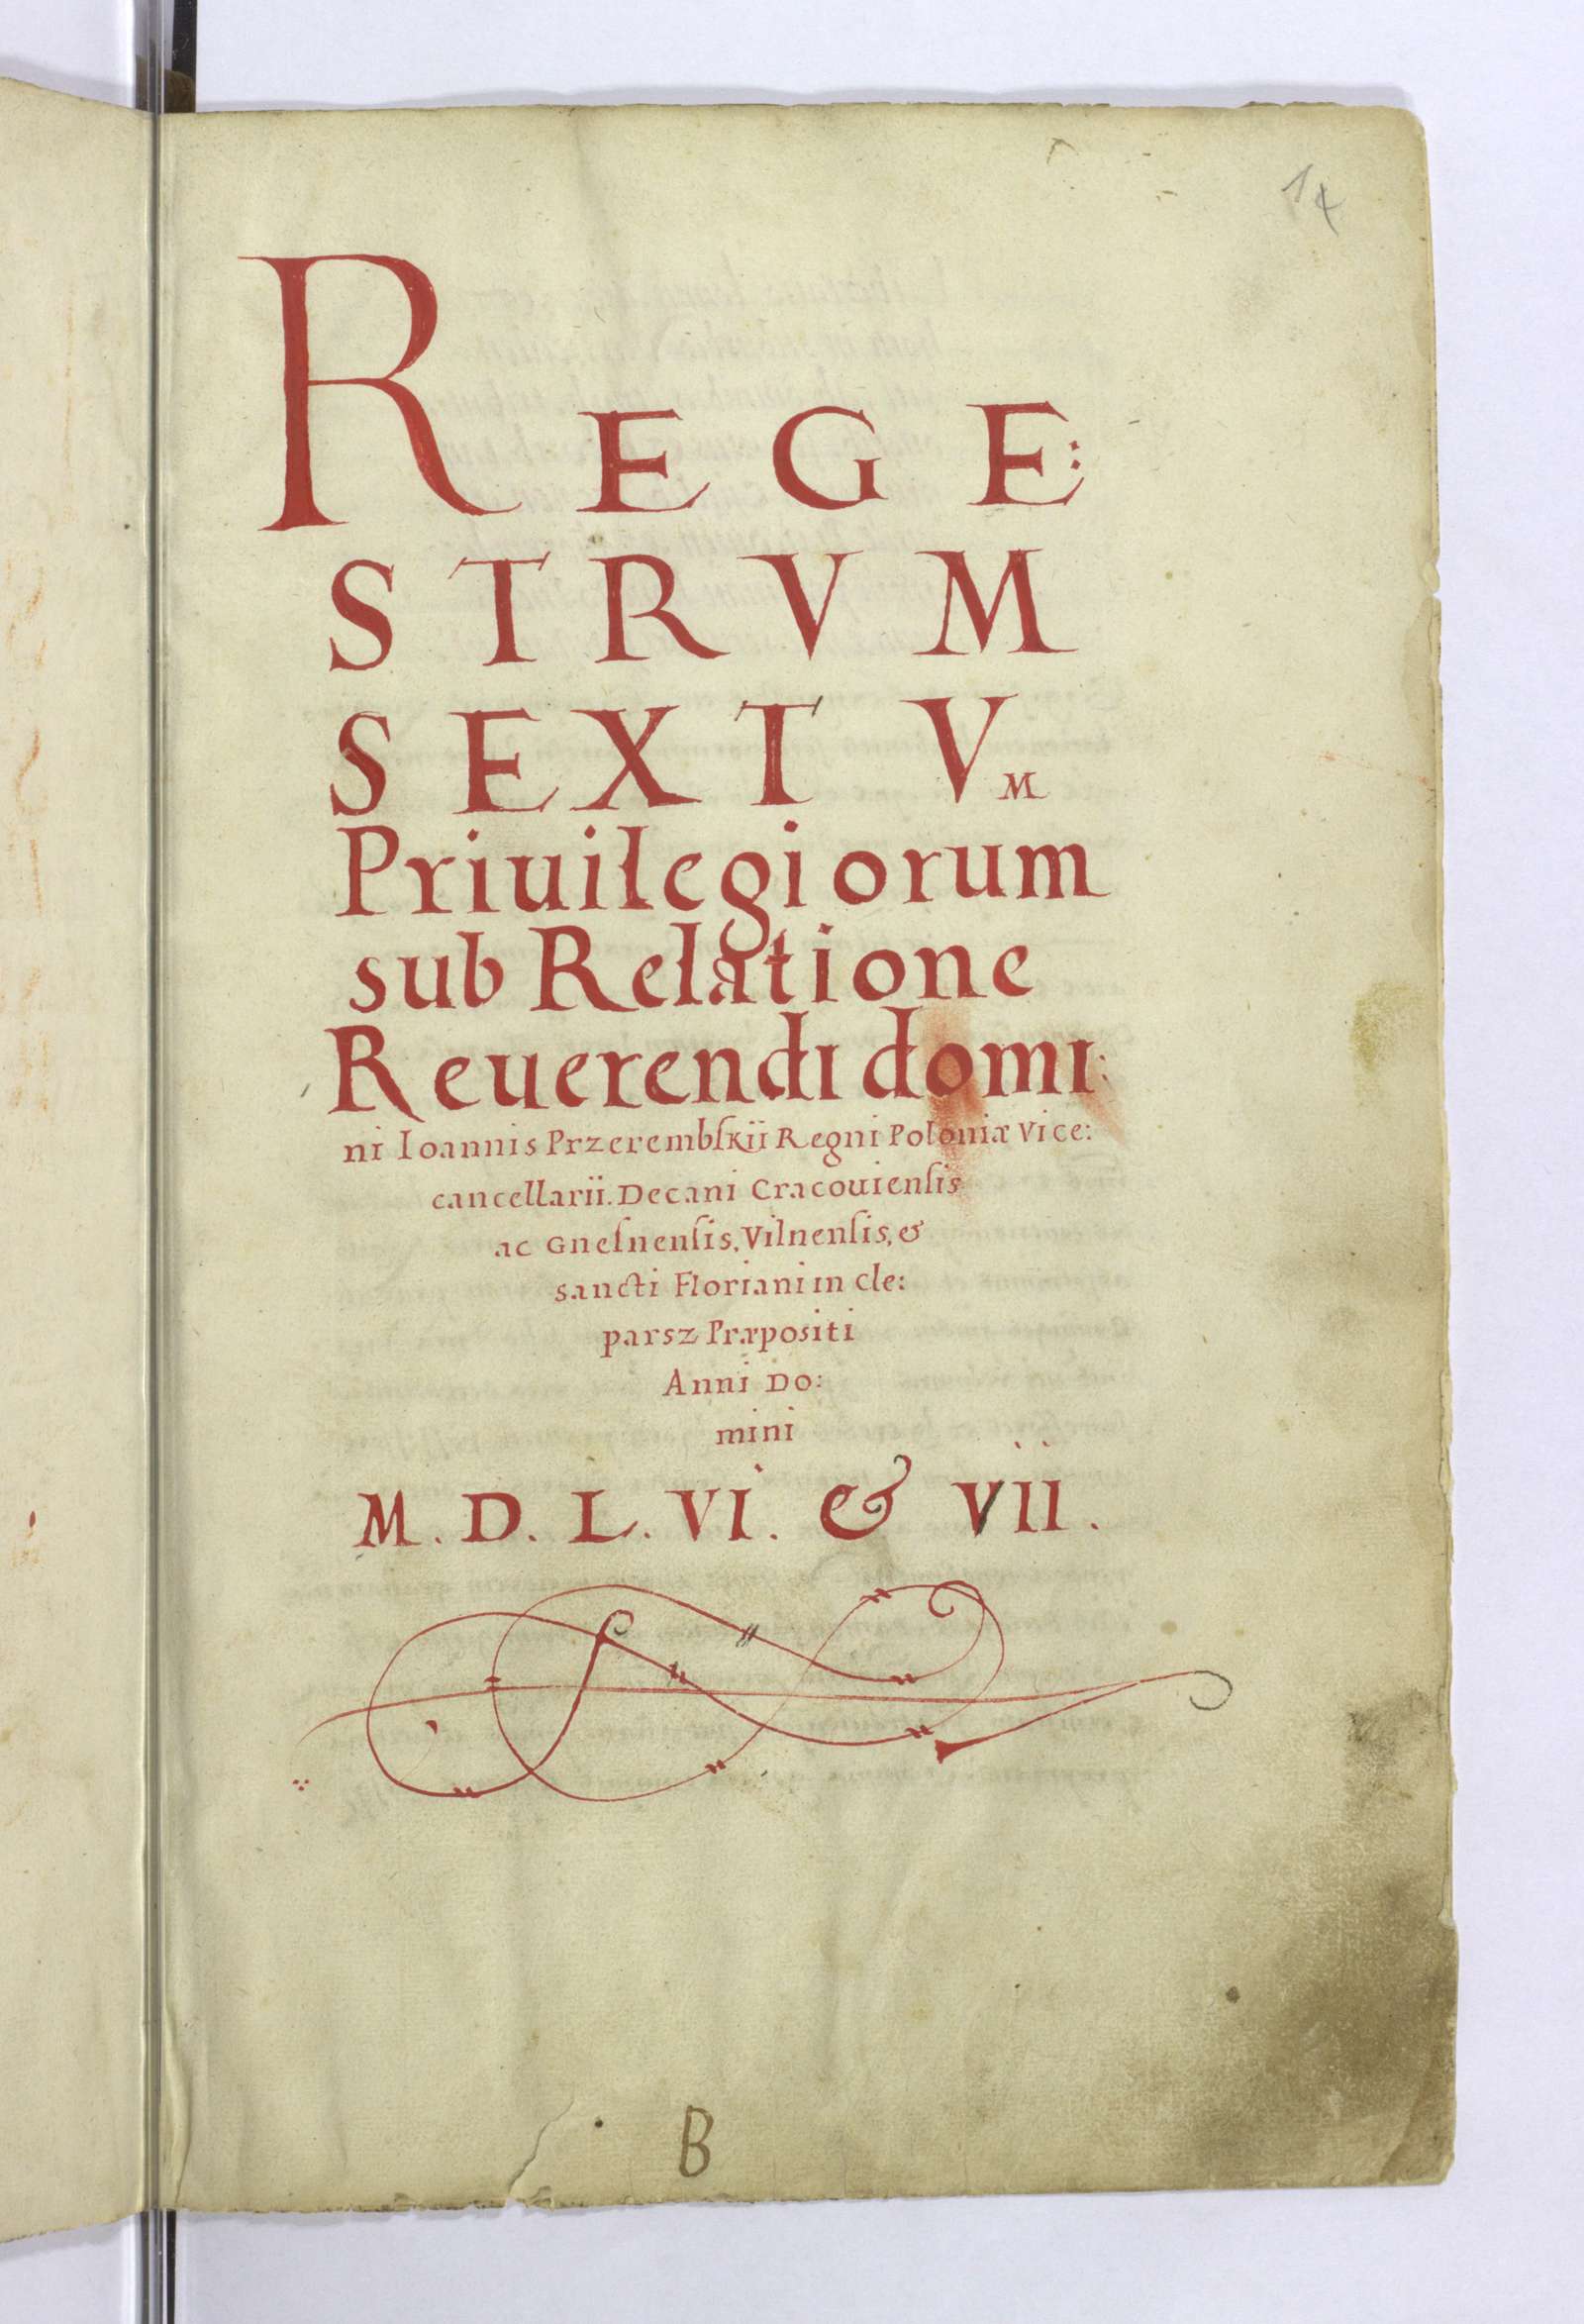 14
REGE:
STRVM
SEXTVM
Priuilegiorum
sub Relatione
Reuerendi domi:
ni Ioannis Przerembſkii Regni Poloniæ Vice:
cancellarii. Decani Cracouienſis
ac Gneſnenſis, Vilnenſis, &
sancti Floriani in Cle:
parsz Præpositi
Anni Do:
mini
M. D. L. VI. & VII.
B